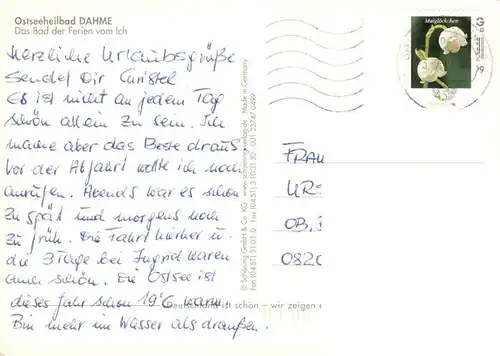 Ostseeheilbad DAHME
Das Bad der Ferien vom Ich
Herzliche Urlaubsgrüße
sendet Dir Christel
Es ist nicht an jedem Tag
schön allein zu sein. Ich
mache aber das Beste draus
Vor der Abfahrt wollte ich noch
anrufen. Abends war es schon
zu spät und morgens noch
zu früh. Die Fahrt hierher u.
die 3 Tage bei Ingrid waren
auch schön. Die Ostsee ist
dieses Jahr schon 19°C warm.
Bin mehr im Wasser als draußen.
© Schöning GmbH & Co. KG
www.schoening-verlag.de Made in Germany
Maiglöckchen
45
FRAU
OB.
0820
Deutschland ist schön – wir zeigen